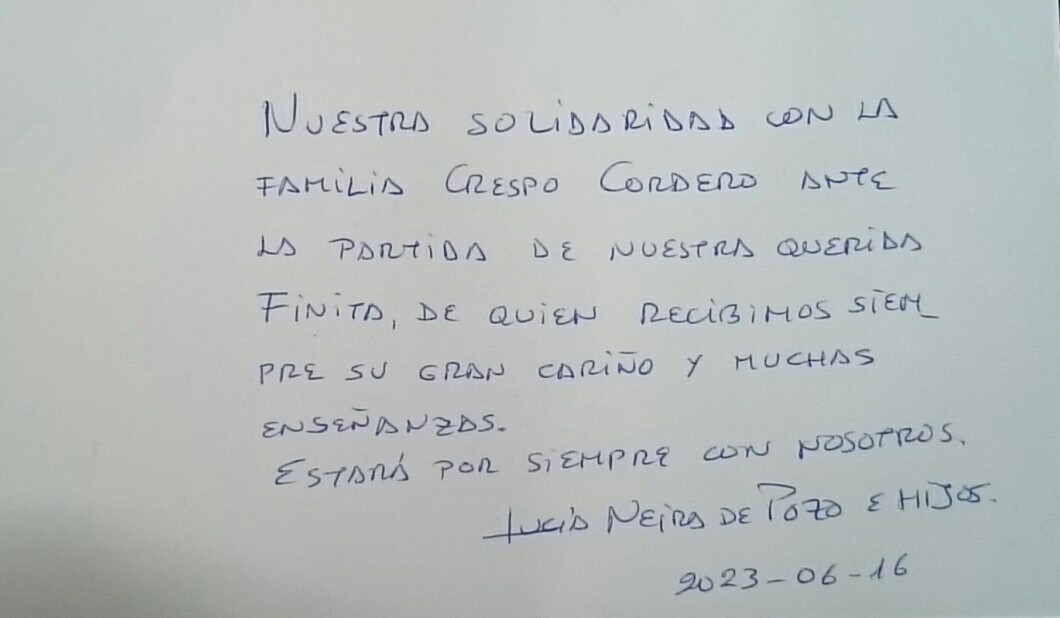 NUESTRA SOLIDARIDAD CON LA
FAMILIA CRESPO CORDERO ANTE
LA PARTIDA DE NUESTRA QUERIDA
FINITA, DE QUIEN RECIBIMOS SIEM_
PRE SU GRAN CARIÑO Y MUCHAS
ENSEÑANZAS.
ESTARÁ POR SIEMPRE CON NOSOTROS.
LUCÍA NEIRA DE POZO E HIJOS.
2023-06-16